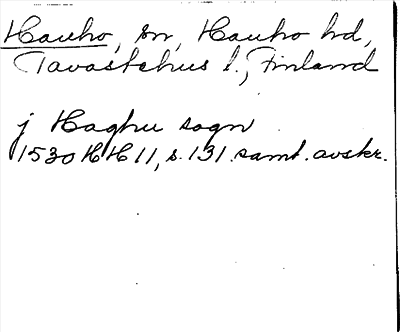 Hauho, sn, Hauho hd,
Tavastehus l., Finland
j Haghu sogn
1530 HH 11, s. 131. samt. avskr.